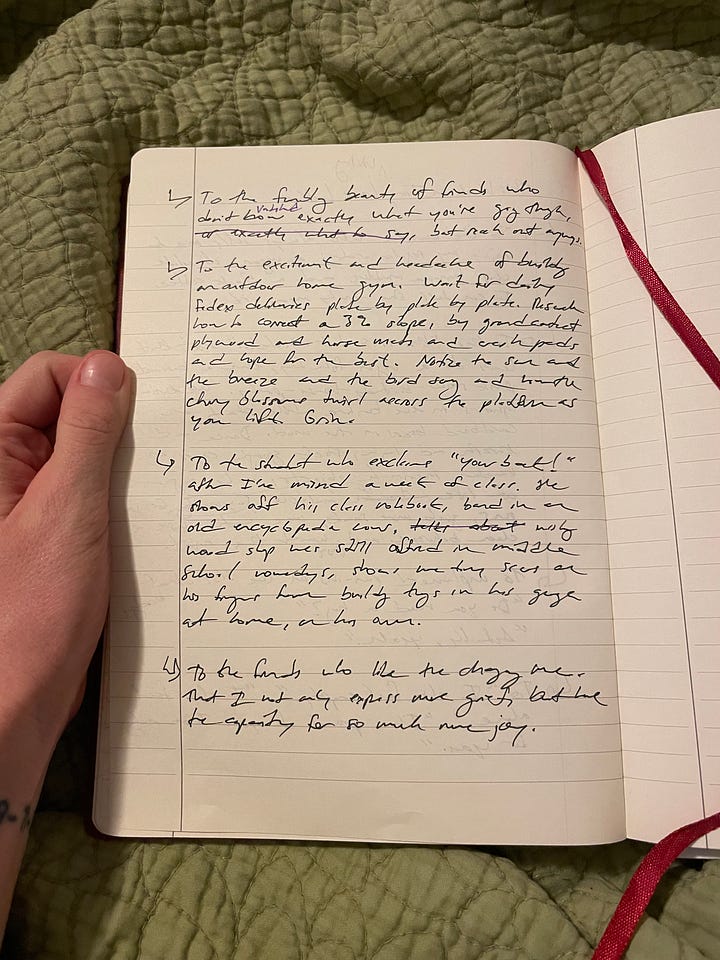 ↳ To the friendly beauty of friends who
don't know exactly what you're going through,
or exactly what to say, but reach out anyways.
↳ To the excitement and headache of building
an outdoor home gym. Wait for daily
Fedex deliveries plate by plate by plate. Research
how to correct a 3% slope, buy
plywood and horse mats and crash pads
and hope for the best. Notice the sun and
the breeze and the bird song and how the
cherry blossoms twirl across the platform as
you lift. Grin.
↳ To the student who exclaims "your back!"
after I've missed a week of class. He
shows off his class notebook, band in an
old encyclopedia cover, talks about why
wood shop was still offered in middle
school nowadays, shows me tiny scars on
his fingers from building things in his garage
at home, on his own.
↳ To the friends who like the changing me.
That I not only express more grief, but have
the capacity for so much more joy.